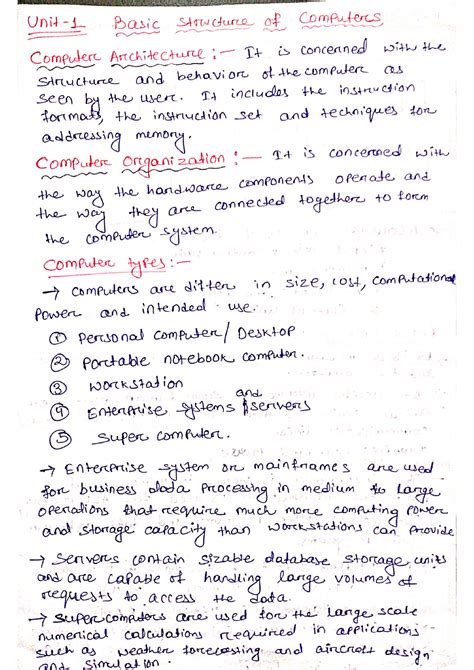 Unit-1 Basic Structure of Computers
Computer Architecture :- It is concerned with the
structure and behavior of the computer as
seen by the user. It includes the instruction
formats, the instruction set and techniques for
addressing memory.
Computer Organization :- It is concerned with
the way the hardware components operate and
the way they are connected together to form
the computer system.
Computer types:-
→ computers are differ in size, cost, computational
power and intended use.
① Personal computer/ Desktop.
② Portable notebook computer.
③ Workstation
④ Enterprise systems and servers
⑤ Super computer.
→ Enterprise system or mainframes are used
for business data processing in medium to large
operations that require much more computing power
and storage capacity than workstations can provide
→ Servers contain sizable database storage units
and are capable of handling large volumes of
requests to access the data.
→ Supercomputers are used for the large scale
numerical calculations required in applications
such as weather forecasting and aircraft design
and simulation.